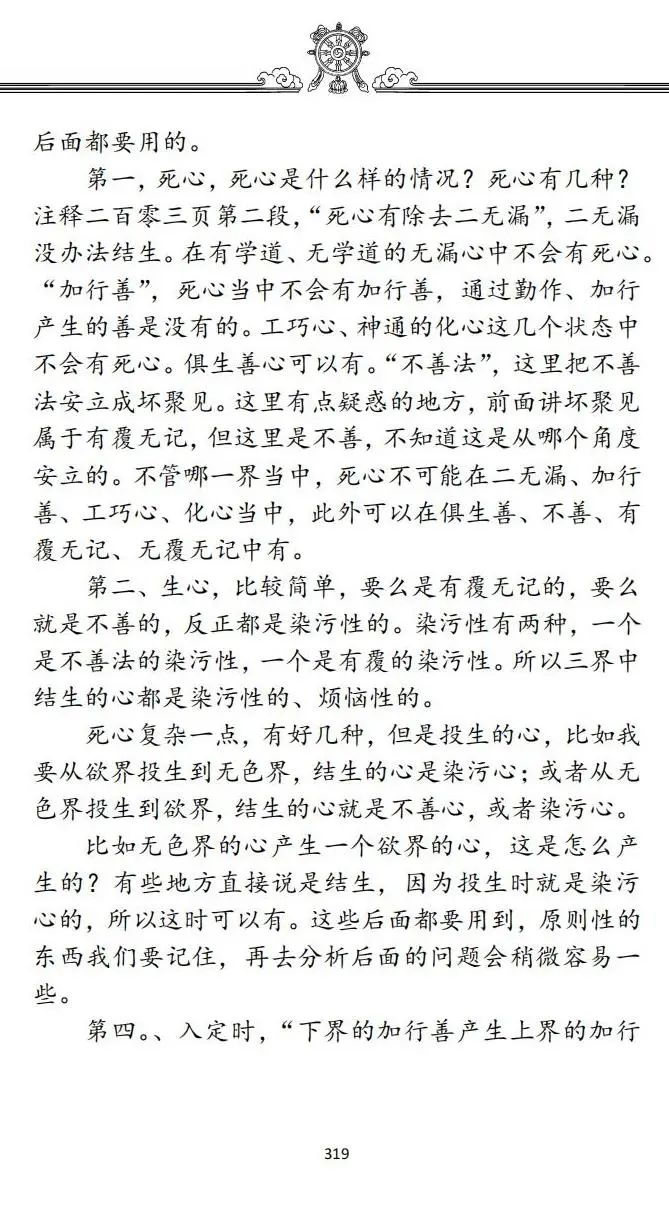 后面都要用的。
第一，死心，死心是什么样的情况？死心有几种？
注释二百零三页第二段，“死心有除去二无漏”，二无漏
没办法结生。在有学道、无学道的无漏心中不会有死心。
“加行善”，死心当中不会有加行善，通过勤作、加行
产生的善是没有的。工巧心、神通的化心这几个状态中
不会有死心。俱生善心可以有。“不善法”，这里把不善
法安立成坏聚见。这里有点疑惑的地方，前面讲坏聚见
属于有覆无记，但这里是不善，不知道这是从哪个角度
安立的。不管哪一界当中，死心不可能在二无漏、加行
善、工巧心、化心当中，此外可以在俱生善、不善、有
覆无记、无覆无记中有。
第二、生心，比较简单，要么是有覆无记的，要么
就是不善的，反正都是染污性的。染污性有两种，一个
是不善法的染污性，一个是有覆的染污性。所以三界中
结生的心都是染污性的、烦恼性的。
死心复杂一点，有好几种，但是投生的心，比如我
要从欲界投生到无色界，结生的心是染污心；或者从无
色界投生到欲界，结生的心就是不善心，或者染污心。
比如无色界的心产生一个欲界的心，这是怎么产
生的？有些地方直接说是结生，因为投生时就是染污
心的，所以这时可以有。这些后面都要用到，原则性的
东西我们要记住，再去分析后面的问题会稍微容易一
些。
第四。、入定时，“下界的加行善产生上界的加行
319